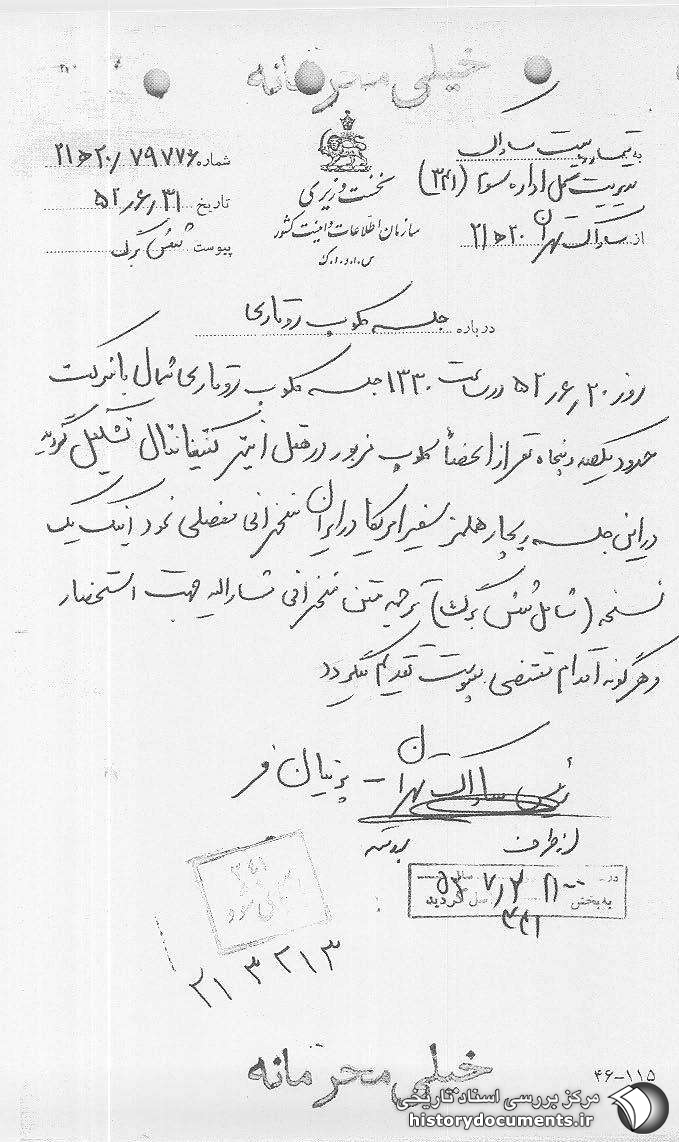 خیلی محرمانه
به تیمسار ریاست ساواک
مدیریت کل اداره سوم (۳۴۱)
از ساواک تهران ۲۰ ه‍ ۲۱
نخست وزیری
سازمان اطلاعات و امنیت کشور
س.ا.و.ا.ک
شماره ۷۹۷۷۶/ ۲۰ ه‍ ۲۱
تاریخ ۳۱/ ۶/ ۵۲
پیوست شش برگ
درباره جلسه کلوپ روتاری
روز ۲۰/ ۶/ ۵۲ در ساعت ۱۳۳۰ جلسه کلوپ روتاری شمال با شرکت
حدود یکصد و پنجاه نفر از اعضاء کلوپ مزبور در هتل اینتر کنتیننتال تشکیل گردید
در این جلسه ریچارد هلمز سفیر امریکا در ایران سخنرانی مفصلی نمود اینک یک
نسخه (شامل شش برگ) ترجمه متن سخنرانی مشارالیه جهت استحضار
و هر گونه اقدام مقتضی به پیوست تقدیم میگردد
رئیس ساواک تهران - پرنیان فر
از طرف
۳۴۱
در ساعت ۲۱۰۰
به بخش ۳۴۱ ارسال گردید
۲۱۳۲۱۳
خیلی محرمانه
۴۶-۱۱۵
مرکز بررسی اسناد تاریخی
historydocuments.ir